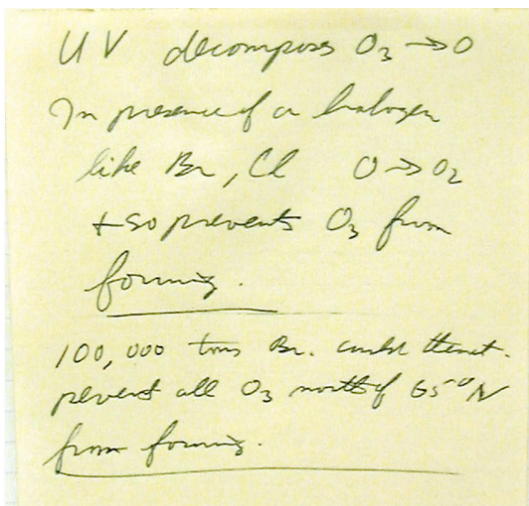 UV decomposes O3 → O
In presence of a halogen
like Br, Cl O → O2
+ so prevents O3 from
forming.
100,000 tons Br. could theoret.
prevent all O3 north of 65°N
from forming.